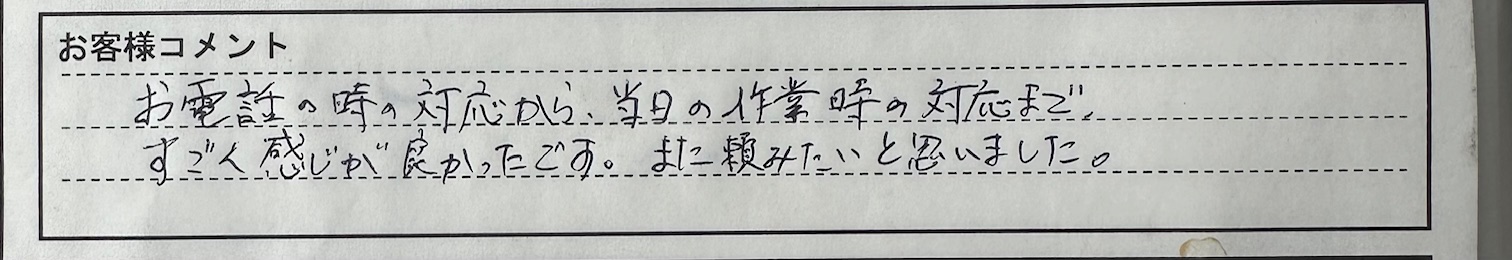 お客様コメント
お電話の時の対応から、当日の作業時の対応まで、
すごく感じが良かったです。また頼みたいと思いました。